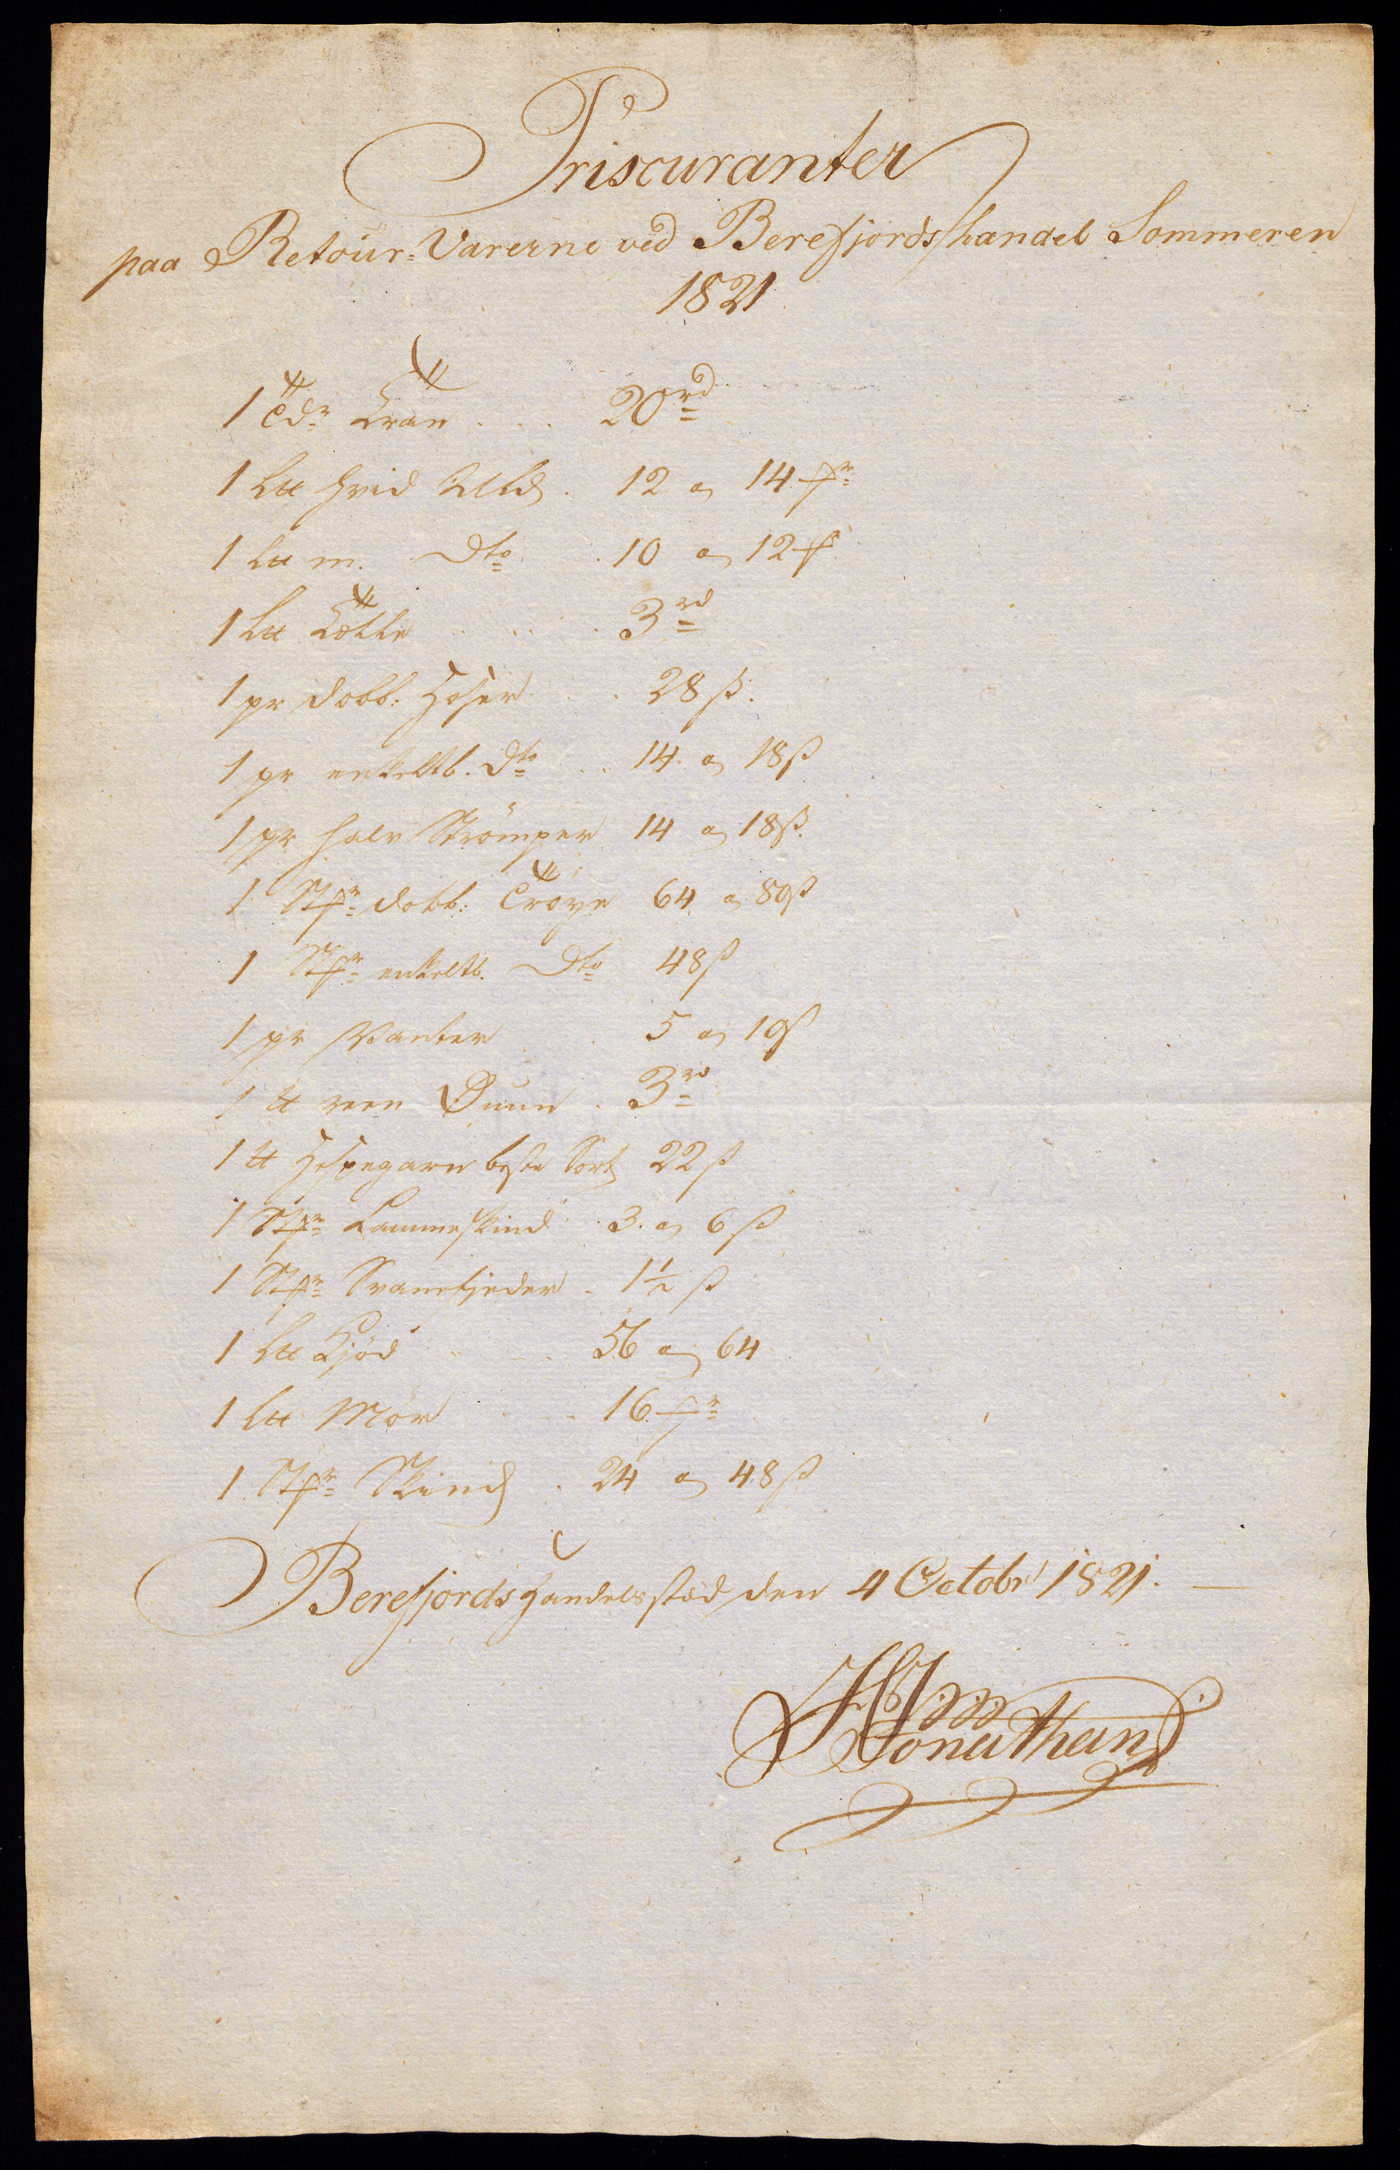 Priscuranter
paa Retour-Varerne ved Berefjordshandel Sommeren
1821
1 Tdr Tran . . . 20 rd
1 L℔ hvid Uld . 12 a 14 f
1 L℔ m. Dto . 10 a 12 f
1 L℔ Tælle . . . 3 rd
1 pr dobb: Hoser . 28 ß.
1 pr enkeltb. Dto . . 14 a 18 ß
1 pr halv Strömper 14 a 18 ß.
1 Stk dobb: Trøye 64 a 80 ß
1 Stk enkeltb. Dto 48 ß
1 pr Vanter . 5 a 10 ß
1 ℔ reen Duun . 3 rd
1 ℔ Hespegarn beste Sort 22 ß
1 Stk Lammeskind . 3 a 6 ß
1 Stk Svanefjeder . 1½ ß
1 L℔ Kjöd . . . 56 a 64
1 L℔ Mör . . . 16
1 Stk Skind . 24 a 48 ß
Berefjords Handelsstæd den 4 Octobr 1821.
Jonathan